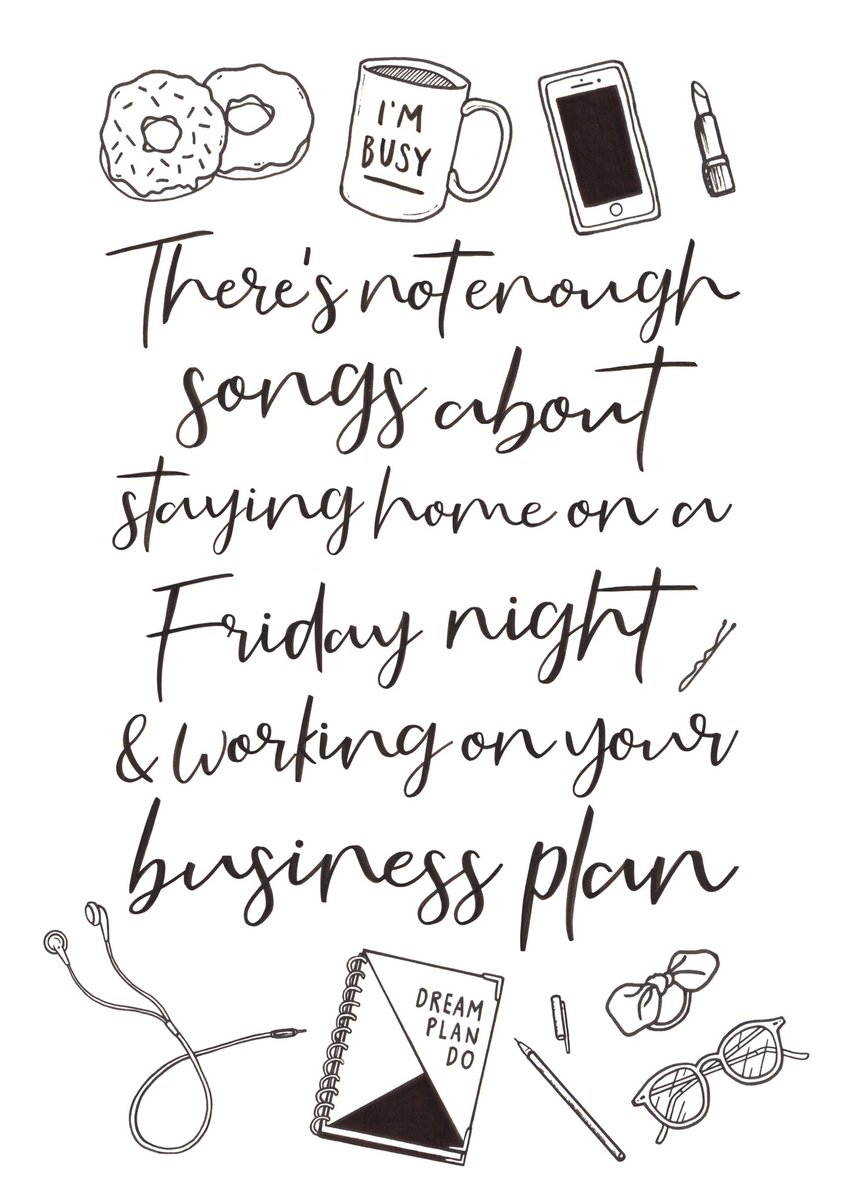 I'M
BUSY
There's not enough
songs about
staying home on a
Friday night
& working on your
business plan
DREAM
PLAN
DO